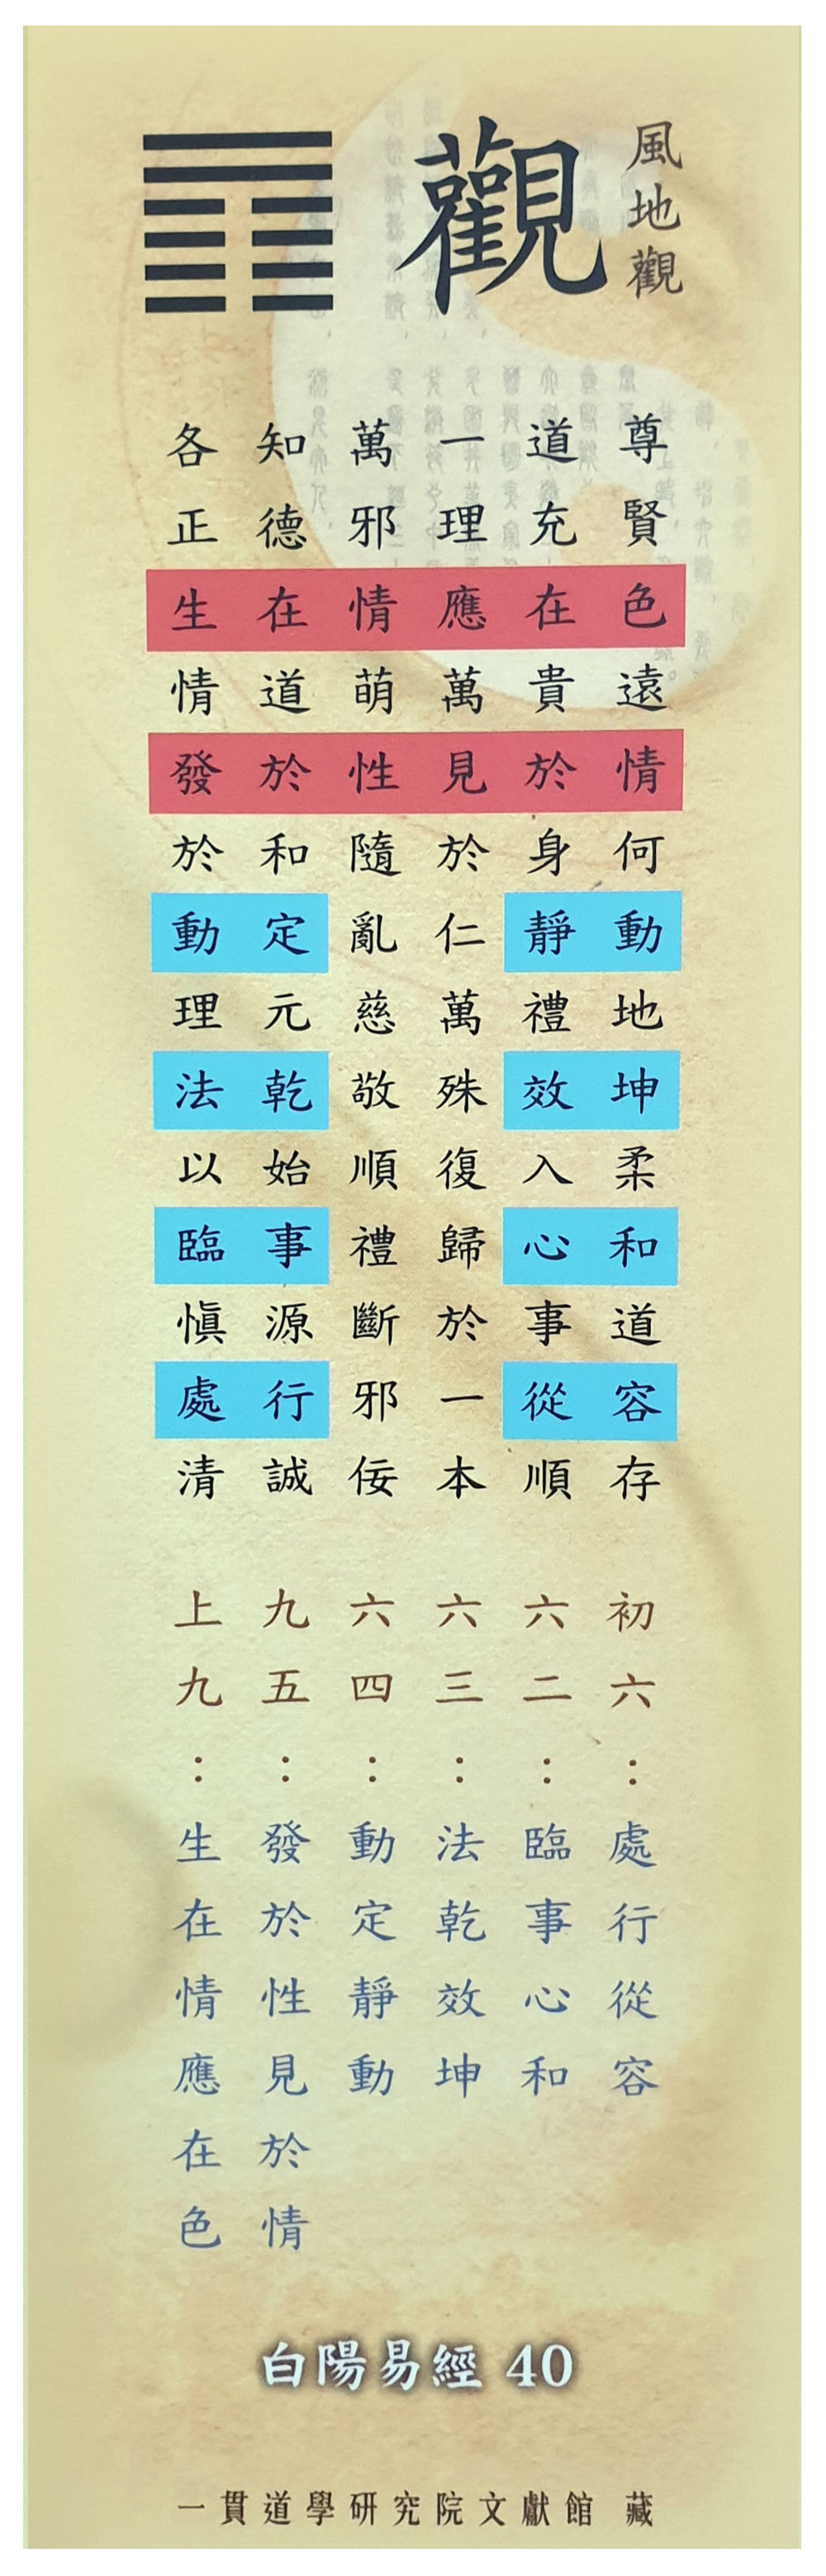 風地觀
觀
尊賢色遠情何動地坤柔和道容存
道充在貴於身靜禮效入心事從順
一理應萬見於仁萬殊復歸於一本
萬邪情萌性隨亂慈敬順禮斷邪佞
知德在道於和定元乾始事源行誠
各正生情發於動理法以臨慎處清
初六：處行從容
六二：臨事心和
六三：法乾效坤
六四：動定靜動
九五：發於性見於情
上九：生在情應在色
白陽易經 40
一貫道學研究院文獻館 藏